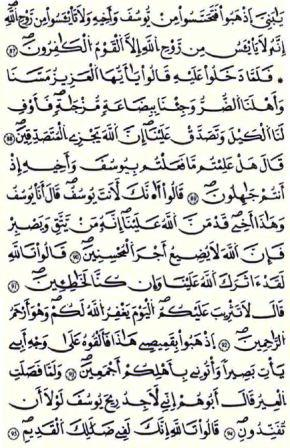 يَٰبَنِىَّ ٱذْهَبُوا۟ فَتَحَسَّسُوا۟ مِن يُوسُفَ وَأَخِيهِ وَلَا تَا۟يْـَٔسُوا۟ مِن رَّوْحِ ٱللَّهِ
إِنَّهُۥ لَا يَا۟يْـَٔسُ مِن رَّوْحِ ٱللَّهِ إِلَّا ٱلْقَوْمُ ٱلْكَٰفِرُونَ ٨٧
۞ فَلَمَّا دَخَلُوا۟ عَلَيْهِ قَالُوا۟ يَٰٓأَيُّهَا ٱلْعَزِيزُ مَسَّنَا
وَأَهْلَنَا ٱلضُّرُّ وَجِئْنَا بِبِضَٰعَةٍ مُّزْجَىٰةٍ فَأَوْفِ
لَنَا ٱلْكَيْلَ وَتَصَدَّقْ عَلَيْنَآ إِنَّ ٱللَّهَ يَجْزِى ٱلْمُتَصَدِّقِينَ ٨٨
قَالَ هَلْ عَلِمْتُم مَّا فَعَلْتُم بِيُوسُفَ وَأَخِيهِ إِذْ
أَنتُمْ جَٰهِلُونَ ٨٩ قَالُوٓا۟ أَءِنَّكَ لَأَنتَ يُوسُفُ قَالَ أَنَا۠ يُوسُفُ
وَهَٰذَآ أَخِى قَدْ مَنَّ ٱللَّهُ عَلَيْنَآ إِنَّهُۥ مَن يَتَّقِ وَيَصْبِرْ
فَإِنَّ ٱللَّهَ لَا يُضِيعُ أَجْرَ ٱلْمُحْسِنِينَ ٩٠ قَالُوا۟ تَٱللَّهِ
لَقَدْ ءَاثَرَكَ ٱللَّهُ عَلَيْنَا وَإِن كُنَّا لَخَٰطِـِٔينَ ٩١
قَالَ لَا تَثْرِيبَ عَلَيْكُمُ ٱلْيَوْمَ يَغْفِرُ ٱللَّهُ لَكُمْ وَهُوَ أَرْحَمُ
ٱلرَّٰحِمِينَ ٩٢ ٱذْهَبُوا۟ بِقَمِيصِى هَٰذَا فَأَلْقُوهُ عَلَىٰ وَجْهِ أَبِى
يَأْتِ بَصِيرًا وَأْتُونِى بِأَهْلِكُمْ أَجْمَعِينَ ٩٣ وَلَمَّا فَصَلَتِ
ٱلْعِيرُ قَالَ أَبُوهُمْ إِنِّى لَأَجِدُ رِيحَ يُوسُفَ لَوْلَآ أَن
تُفَنِّدُونِ ٩٤ قَالُوا۟ تَٱللَّهِ إِنَّكَ لَفِى ضَلَٰلِكَ ٱلْقَدِيمِ ٩٥